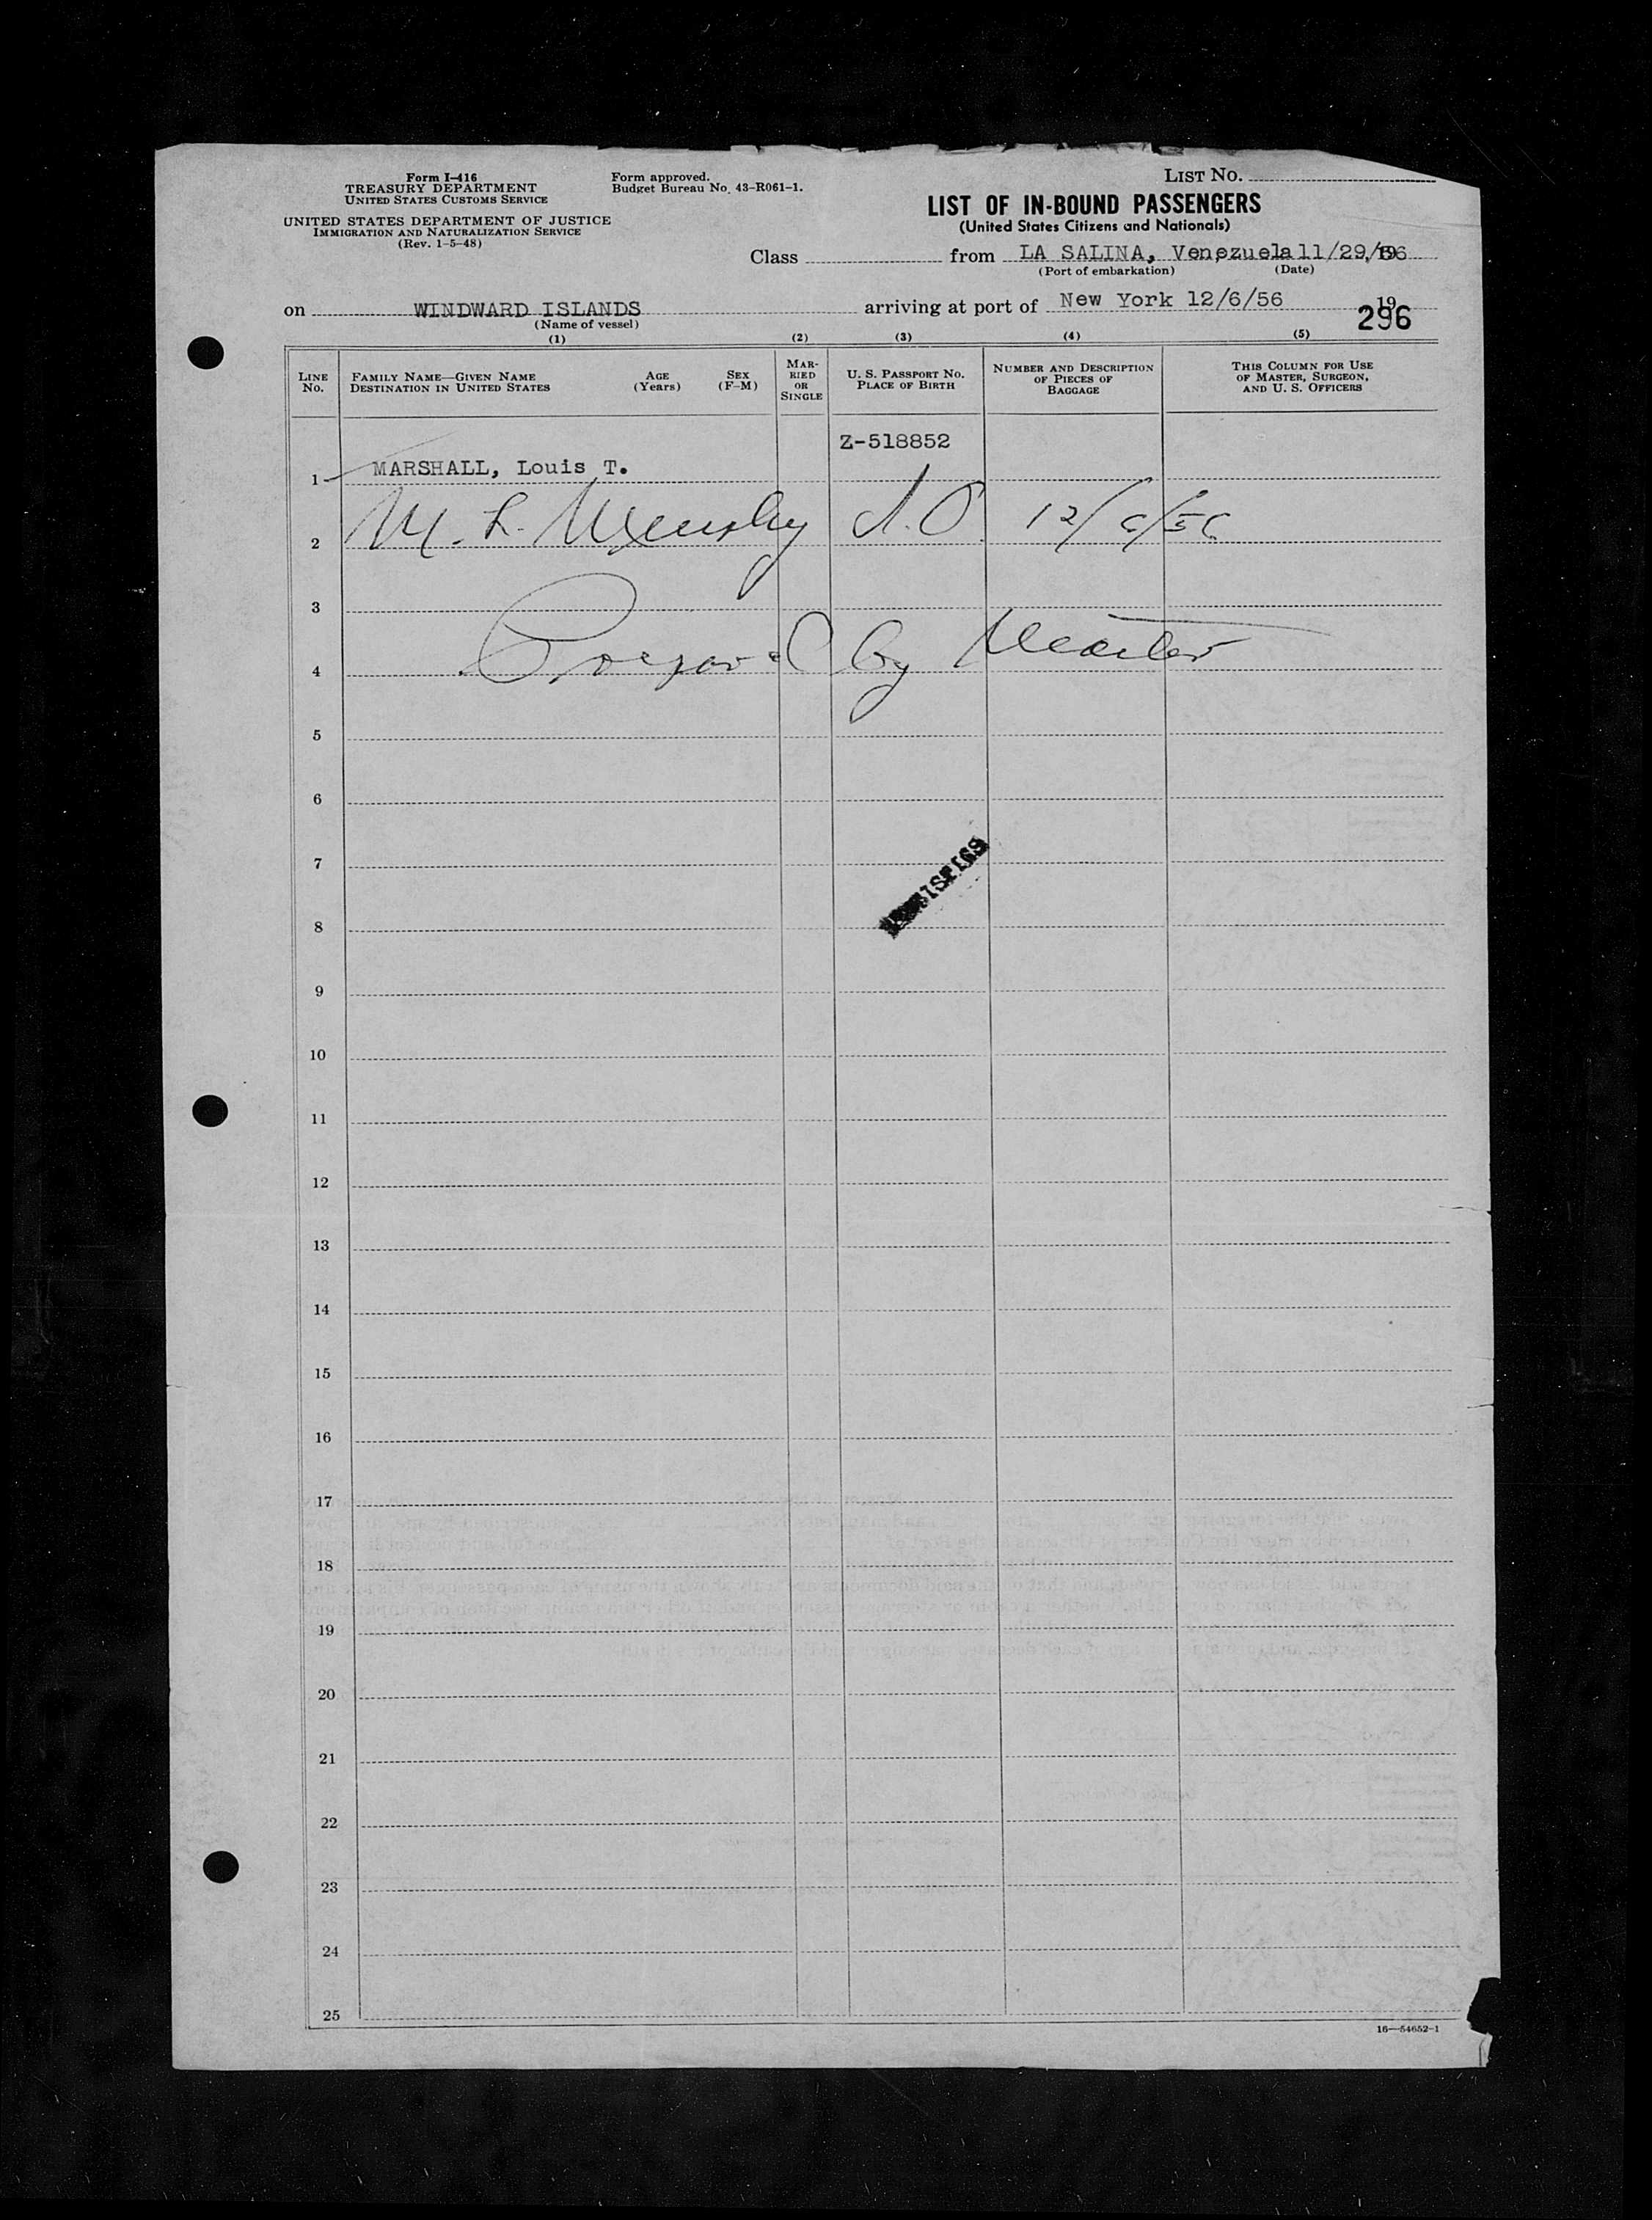 Form I-416
TREASURY DEPARTMENT
UNITED STATES CUSTOMS SERVICE
UNITED STATES DEPARTMENT OF JUSTICE
IMMIGRATION AND NATURALIZATION SERVICE
(Rev. 1-5-48)
Form approved.
Budget Bureau No. 43-R061-1.
LIST NO.
LIST OF IN-BOUND PASSENGERS
(United States Citizens and Nationals)
Class from LA SALINA, Venezuela 11/29/56
(Port of embarkation) (Date)
on WINDWARD ISLANDS arriving at port of New York 12/6/56 , 19
(Name of vessel)
296
(1) (2) (3) (4) (5)
LINE NO.
FAMILY NAME—GIVEN NAME
DESTINATION IN UNITED STATES
AGE (Years)
SEX (F-M)
MARRIED OR SINGLE
U. S. PASSPORT NO.
PLACE OF BIRTH
NUMBER AND DESCRIPTION OF PIECES OF BAGGAGE
THIS COLUMN FOR USE OF MASTER, SURGEON, AND U. S. OFFICERS
Z-518852
1 MARSHALL, Louis T.
2 M. L. 12/6/56
3
4 by Master
5
6
7
8
9
10
11
12
13
14
15
16
17
18
19
20
21
22
23
24
25
16—54652-1